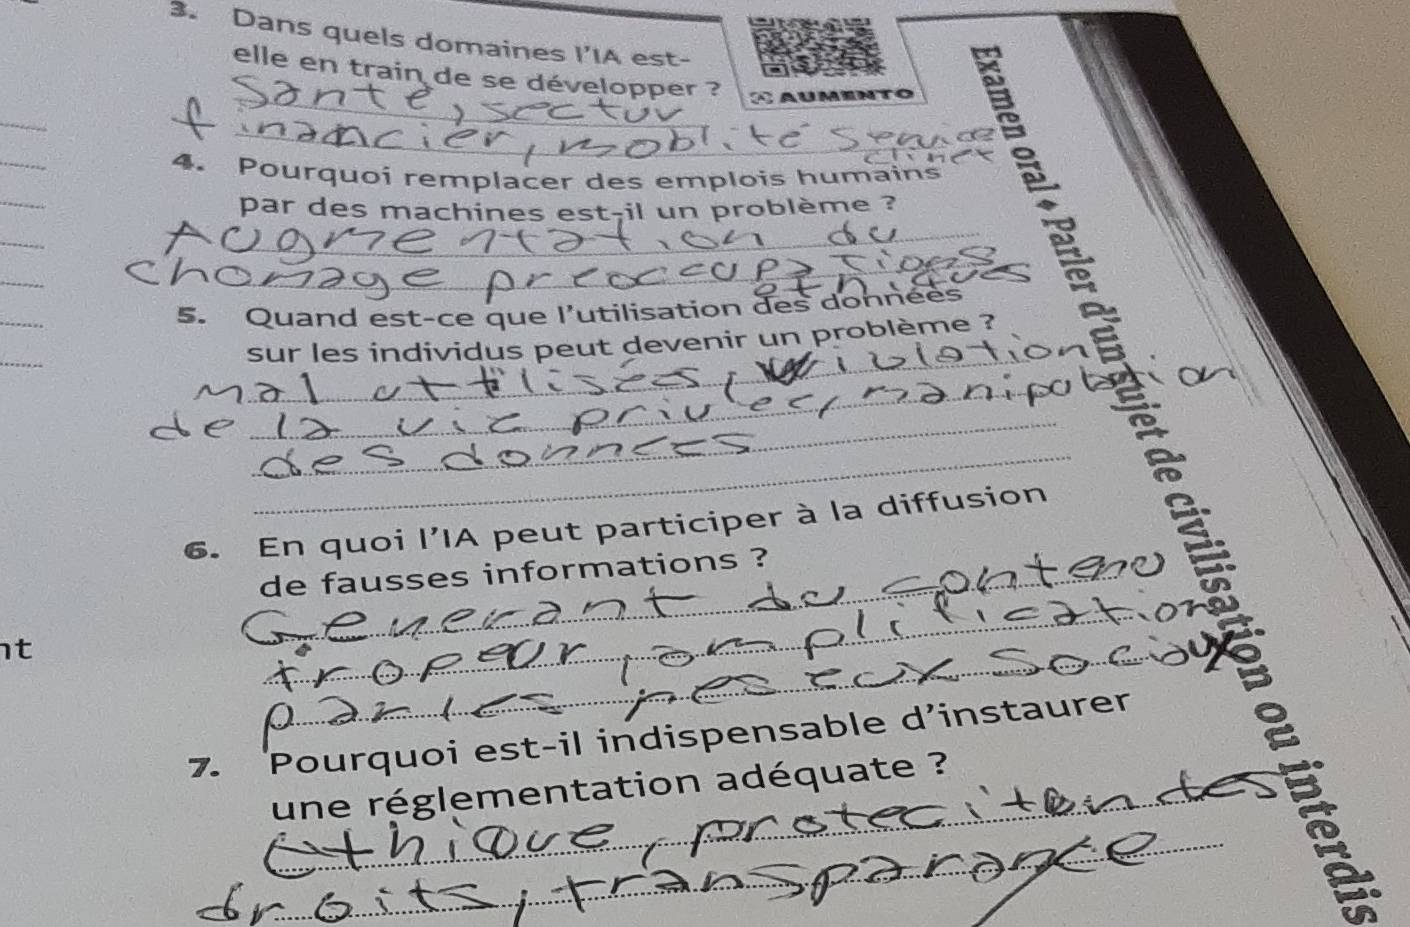 3. Dans quels domaines l'IA est-
elle en train de se développer ?
AUMENTO
Santé, sectur
financier, moblité service
clinet
4. Pourquoi remplacer des emplois humains
par des machines est-il un problème ?
Augmentation du
chomage preoccupations
ethniques
5. Quand est-ce que l'utilisation des données
sur les individus peut devenir un problème ?
Mal utilisées, violation
de la vie privée, manipolation
des données
6. En quoi l'IA peut participer à la diffusion
de fausses informations ?
Generant du contenu
tropeur, amplification
par les reseux sociaux
7. Pourquoi est-il indispensable d'instaurer
une réglementation adéquate ?
Ethique, proteciton des
droits, transparance
nt
Examen oral • Parler d'un sujet de civilisation ou interdis